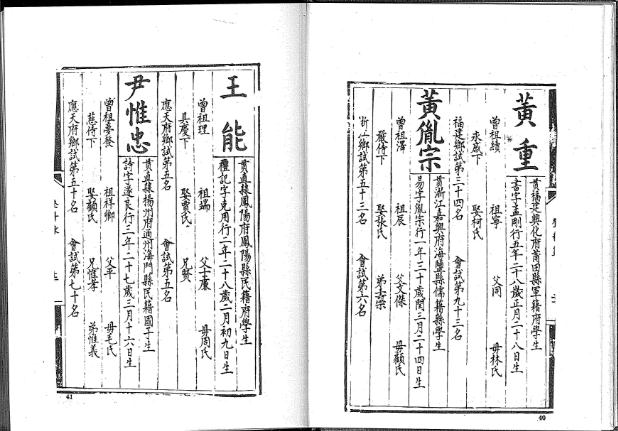 黃重
貫福建興化府莆田縣軍籍府學生
書字孟剛行五年二十八歲正月二十八日生
曾祖績 祖寧 父同 母林氏
永感下 娶柯氏
福建鄉試第三十四名 會試第九十三名
黃胤宗
貫浙江嘉興府海鹽縣儒籍縣學生
易字胤宗行一年三十歲閏三月二十四日生
曾祖澤 祖辰 父文傑 母顧氏
嚴侍下 娶張氏 弟士宗
浙江鄉試第五十三名 會試第六名
40
王能
貫直隸鳳陽府鳳陽縣民籍府學生
禮記字克用行一年二十八歲二月初九日生
曾祖理 祖瑞 父士廉 母周氏
具慶下 娶賈氏 兄賢
應天府鄉試第五名 會試第五名
尹惟忠
貫直隸揚州府通州海門縣民籍國子生
詩字遂良行三年二十七歲三月十六日生
曾祖 祖祥卿 父平 母毛氏
慈侍下 娶顧氏 兄惟孝 弟惟義
應天府鄉試第五十名 會試第七十名
41